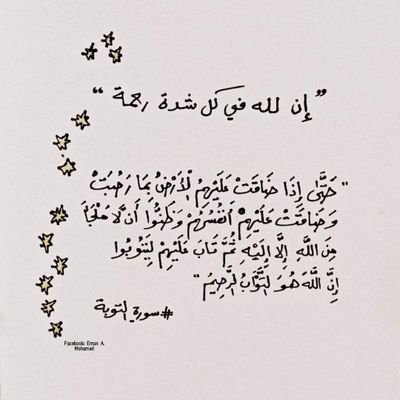 ”إن لله في كل شدة رحمة“
"حَتَّىٰ إِذَا ضَاقَتْ عَلَيْهِمُ الْأَرْضُ بِمَا رَحُبَتْ
وَضَاقَتْ عَلَيْهِمْ أَنْفُسُهُمْ وَظَنُّوا أَن لَّا مَلْجَأَ
مِنَ اللَّهِ إِلَّا إِلَيْهِ ثُمَّ تَابَ عَلَيْهِمْ لِيَتُوبُوا
إِنَّ اللَّهَ هُوَ التَّوَّابُ الرَّحِيمُ"
#سورة التوبة
Facebook: Eman A.
Mohamed